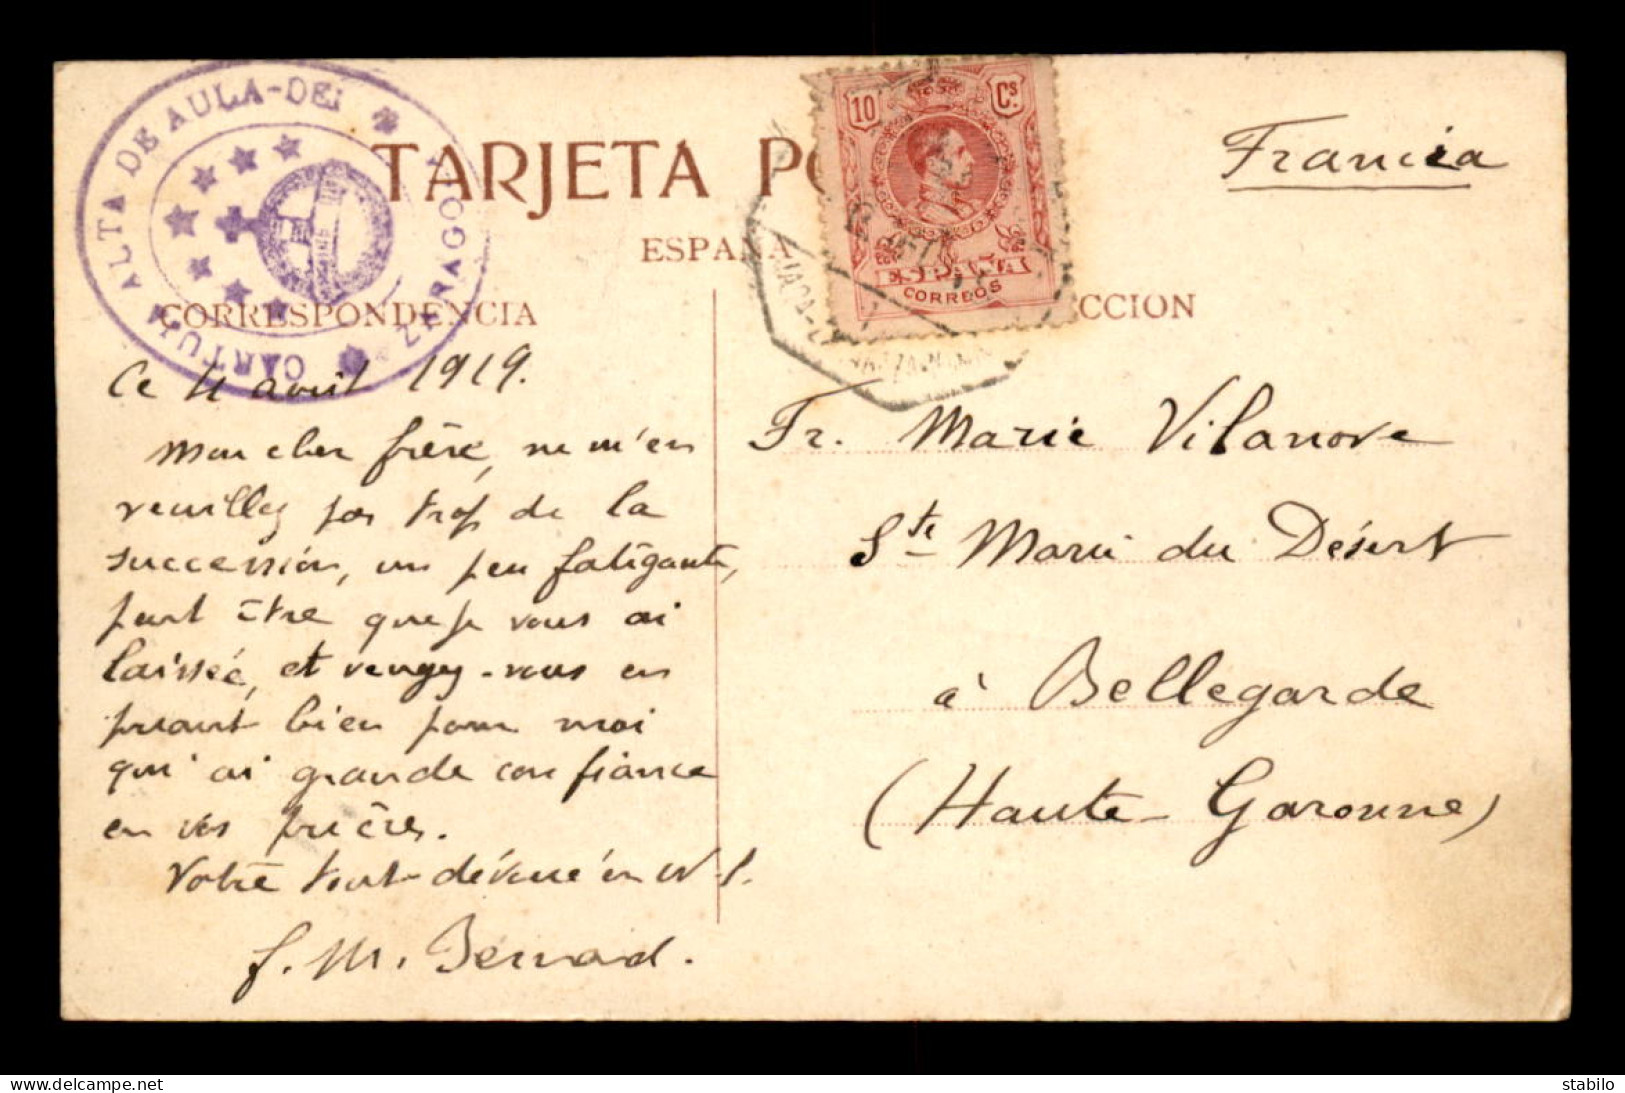 CARTUJA ALTA DE AULA-DEI
ZARAGOZA
TARJETA PO
ESPAÑA
CORRESPONDENCIA
CCION
10 Cs.
ESPAÑA
CORREOS
Francia
Ce 4 avril 1919.
Mon cher frère, ne m'en
veuillez pas trop de la
succession, un peu fatigante,
peut être que je vous ai
laissée, et vengez-vous en
priant bien pour moi
qui ai grande confiance
en vos prières.
Votre tout dévoué en N. S.
f. M. Bernard.
Fr. Marie Vilanove
Ste Marie du Désert
à Bellegarde
(Haute-Garonne)
delcampe.net
stabilo